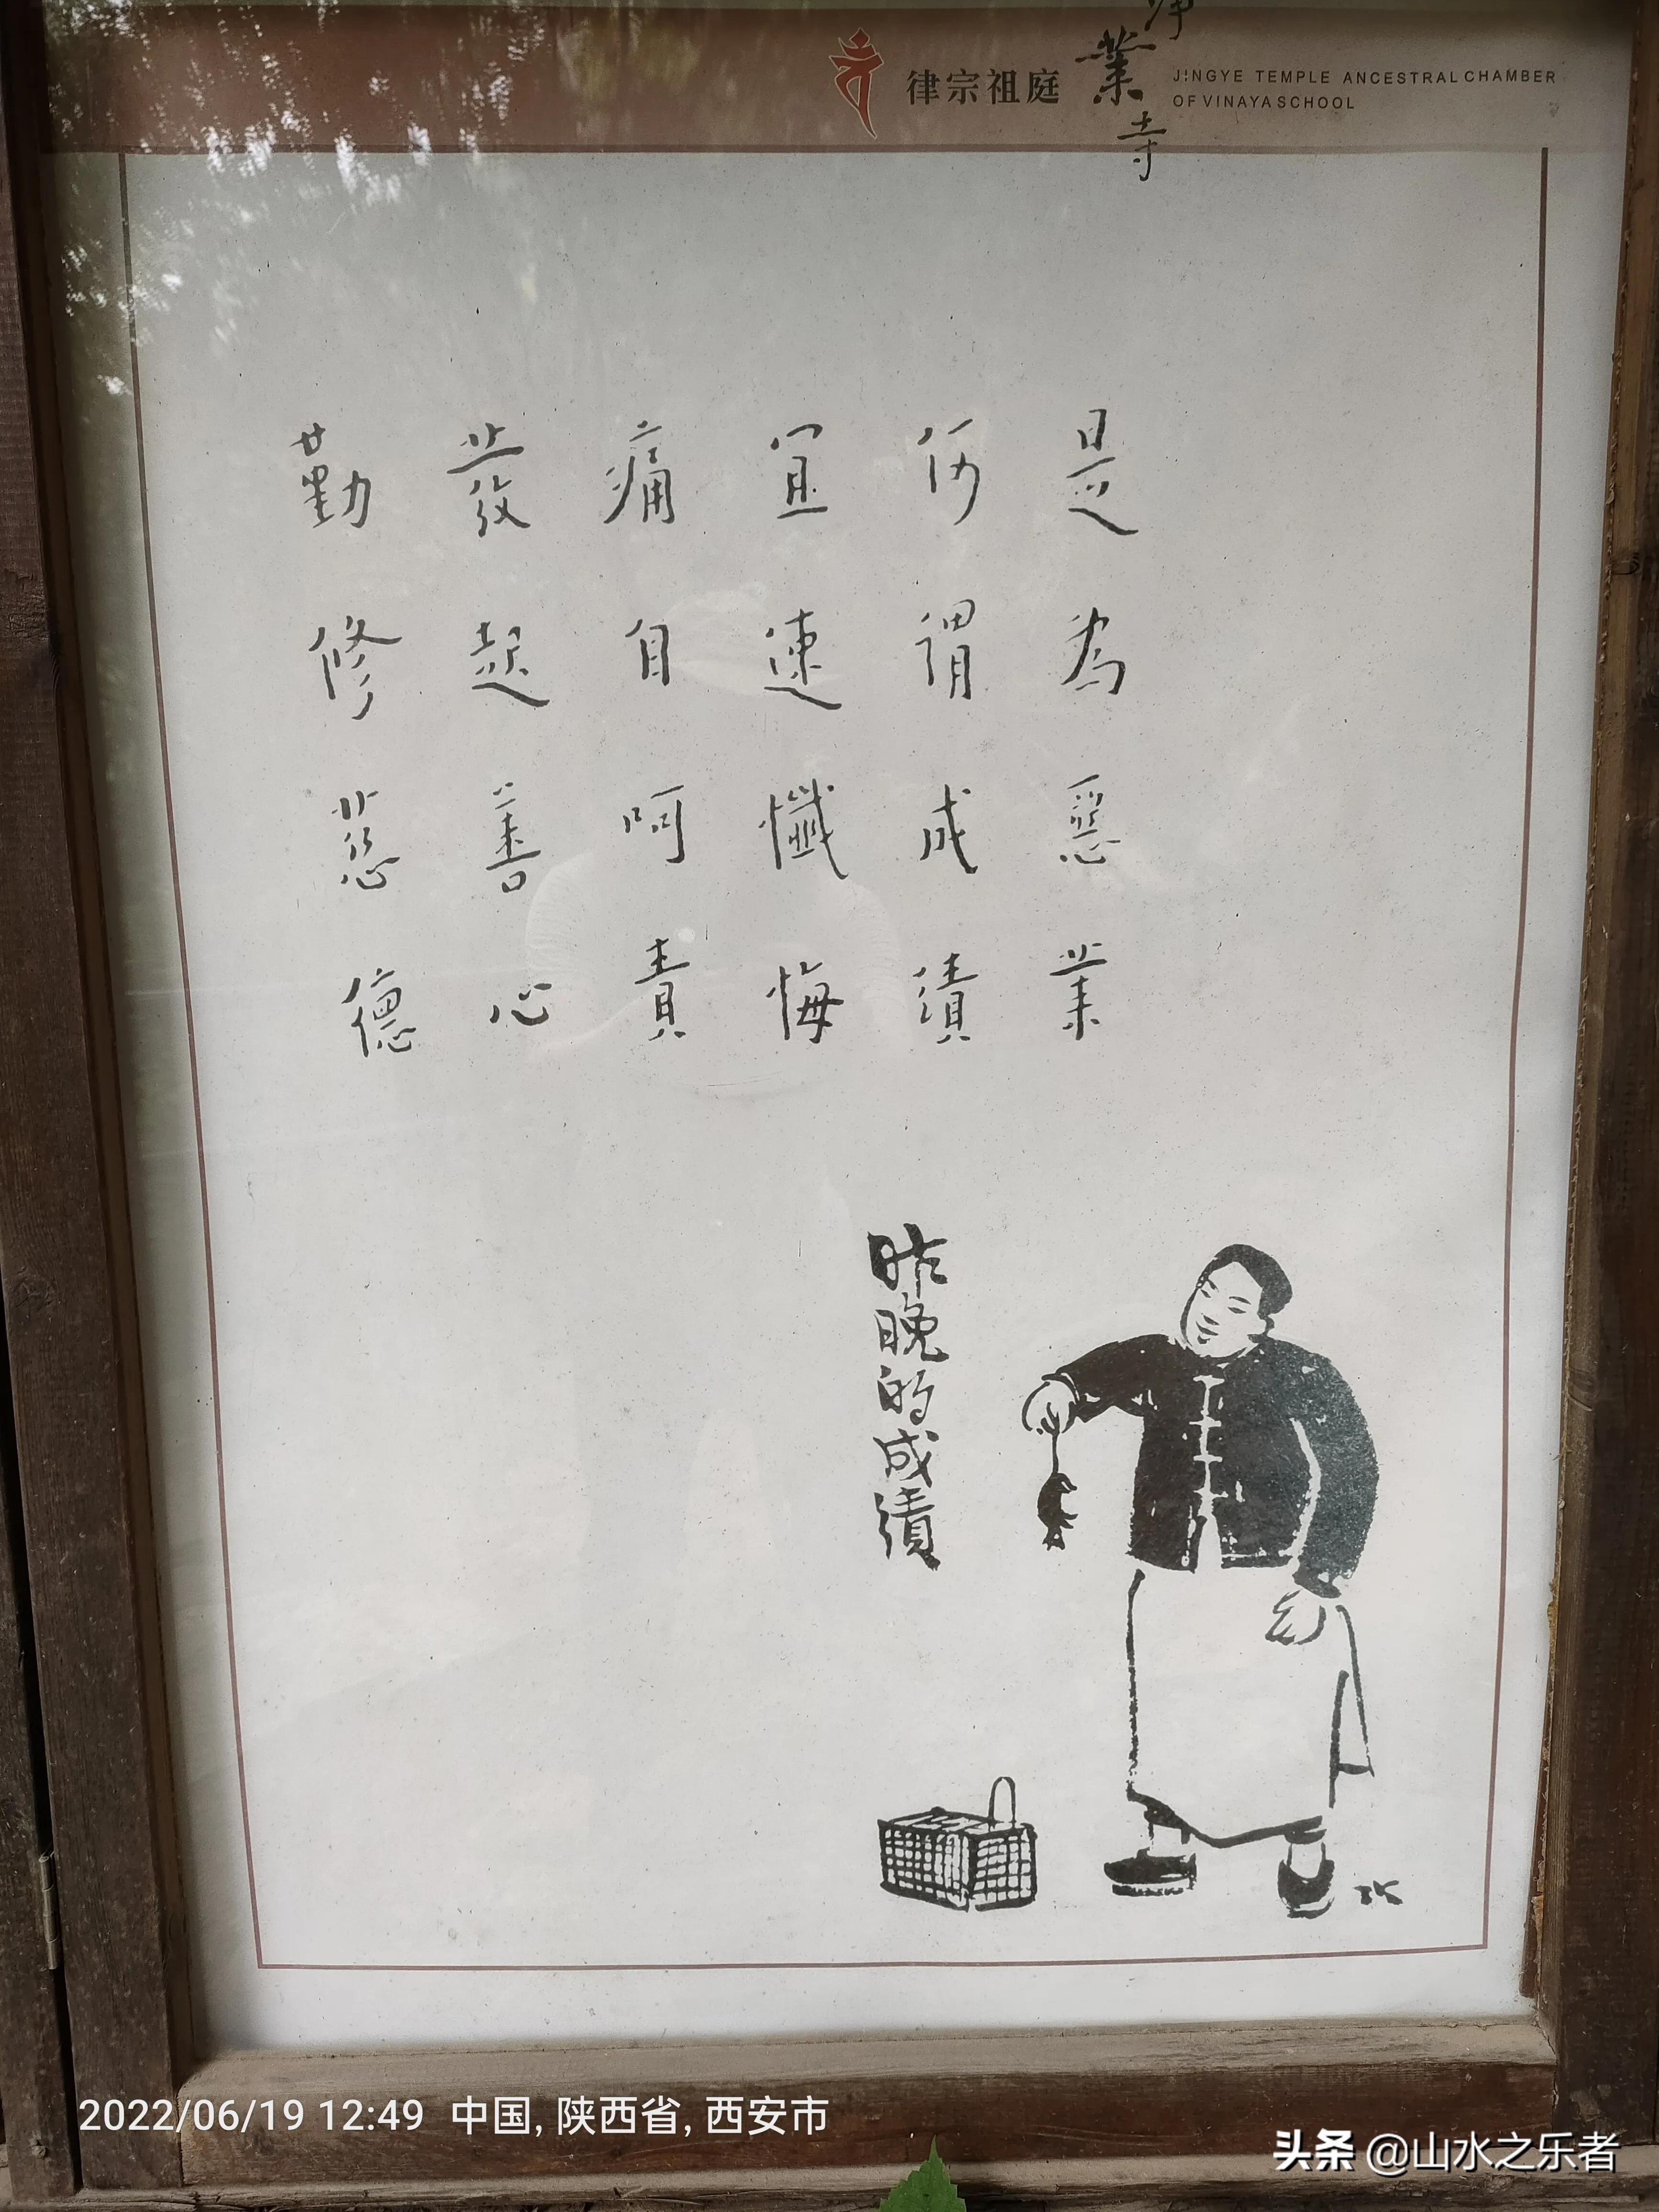 律宗祖庭
净業寺
JINGYE TEMPLE ANCESTRAL CHAMBER
OF VINAYA SCHOOL
是為惡業
何謂成績
宜速懺悔
痛自呵責
發起善心
勤修慈德
昨晚的成績
TK
2022/06/19 12:49 中国, 陕西省, 西安市
头条 @山水之乐者